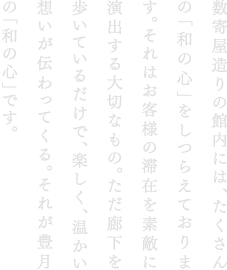 数寄屋造りの館内には、たくさん
の「和の心」をしつらえておりま
す。それはお客様の滞在を素敵に
演出する大切なもの。ただ廊下を
歩いているだけで、楽しく、温かい
想いが伝わってくる。それが豊月
の「和の心」です。